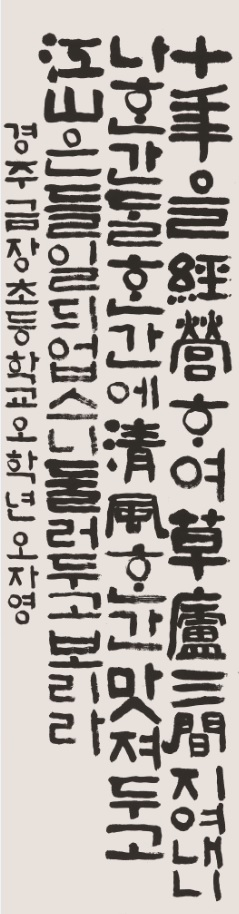 十年을經營ᄒᆞ여草廬三間지여내니
나ᄒᆞᆫ간ᄃᆞᆯᄒᆞᆫ간에清風ᄒᆞᆫ간맛져두고
江山은들일듸업스니둘러두고보리라
경주금장초등학교오학년오자영